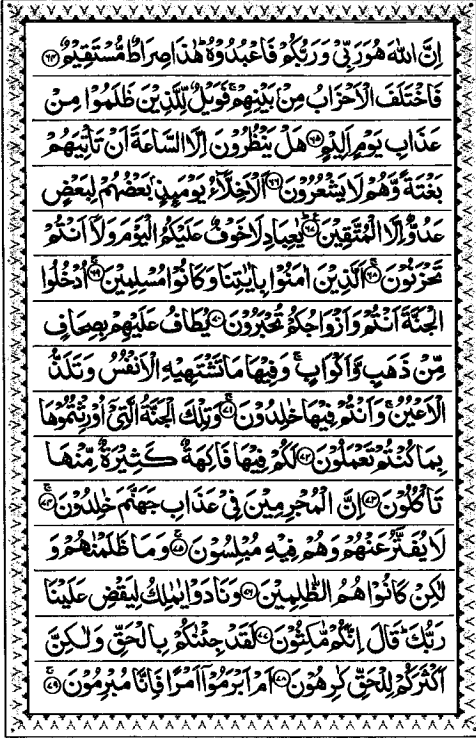 اِنَّ اللّٰهَ هُوَ رَبِّيْ وَرَبُّكُمْ فَاعْبُدُوْهُ ؕ هٰذَا صِرَاطٌ مُّسْتَقِيْمٌ ﴿۶۴﴾
فَاخْتَلَفَ الْاَحْزَابُ مِنْۢ بَيْنِهِمْ ۚ فَوَيْلٌ لِّلَّذِيْنَ ظَلَمُوْا مِنْ
عَذَابِ يَوْمٍ اَلِيْمٍ ﴿۶۵﴾ هَلْ يَنْظُرُوْنَ اِلَّا السَّاعَةَ اَنْ تَاْتِيَهُمْ
بَغْتَةً وَّهُمْ لَا يَشْعُرُوْنَ ﴿۶۶﴾ اَلْاَخِلَّآءُ يَوْمَىِٕذٍۭ بَعْضُهُمْ لِبَعْضٍ
عَدُوٌّ اِلَّا الْمُتَّقِيْنَ ﴿۶۷﴾ يٰعِبَادِ لَا خَوْفٌ عَلَيْكُمُ الْيَوْمَ وَلَاۤ اَنْتُمْ
تَحْزَنُوْنَ ﴿۶۸﴾ اَلَّذِيْنَ اٰمَنُوْا بِاٰيٰتِنَا وَكَانُوْا مُسْلِمِيْنَ ﴿۶۹﴾ اُدْخُلُوا
الْجَنَّةَ اَنْتُمْ وَاَزْوَاجُكُمْ تُحْبَرُوْنَ ﴿۷۰﴾ يُطَافُ عَلَيْهِمْ بِصِحَافٍ
مِّنْ ذَهَبٍ وَّاَكْوَابٍ ۚ وَفِيْهَا مَا تَشْتَهِيْهِ الْاَنْفُسُ وَتَلَذُّ
الْاَعْيُنُ ۚ وَاَنْتُمْ فِيْهَا خٰلِدُوْنَ ﴿۷۱﴾ وَتِلْكَ الْجَنَّةُ الَّتِيْۤ اُوْرِثْتُمُوْهَا
بِمَا كُنْتُمْ تَعْمَلُوْنَ ﴿۷۲﴾ لَكُمْ فِيْهَا فَاكِهَةٌ كَثِيْرَةٌ مِّنْهَا
تَاْكُلُوْنَ ﴿۷۳﴾ اِنَّ الْمُجْرِمِيْنَ فِيْ عَذَابِ جَهَنَّمَ خٰلِدُوْنَ ﴿۷۴﴾
لَا يُفَتَّرُ عَنْهُمْ وَهُمْ فِيْهِ مُبْلِسُوْنَ ﴿۷۵﴾ وَمَا ظَلَمْنٰهُمْ وَ
لٰكِنْ كَانُوْا هُمُ الظّٰلِمِيْنَ ﴿۷۶﴾ وَنَادَوْا يٰمٰلِكُ لِيَقْضِ عَلَيْنَا
رَبُّكَ ؕ قَالَ اِنَّكُمْ مّٰكِثُوْنَ ﴿۷۷﴾ لَقَدْ جِئْنٰكُمْ بِالْحَقِّ وَلٰكِنَّ
اَكْثَرَكُمْ لِلْحَقِّ كٰرِهُوْنَ ﴿۷۸﴾ اَمْ اَبْرَمُوْۤا اَمْرًا فَاِنَّا مُبْرِمُوْنَ ﴿۷۹﴾